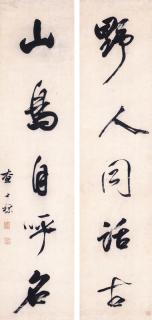 野人同話古
山鳥自呼名
查士標